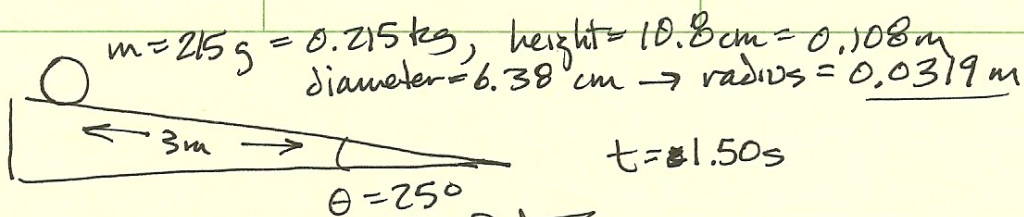 m = 215 g = 0.215 kg, height = 10.8 cm = 0.108 m
diameter = 6.38 cm → radius = 0.0319 m
3m
t = 1.50s
θ = 25°